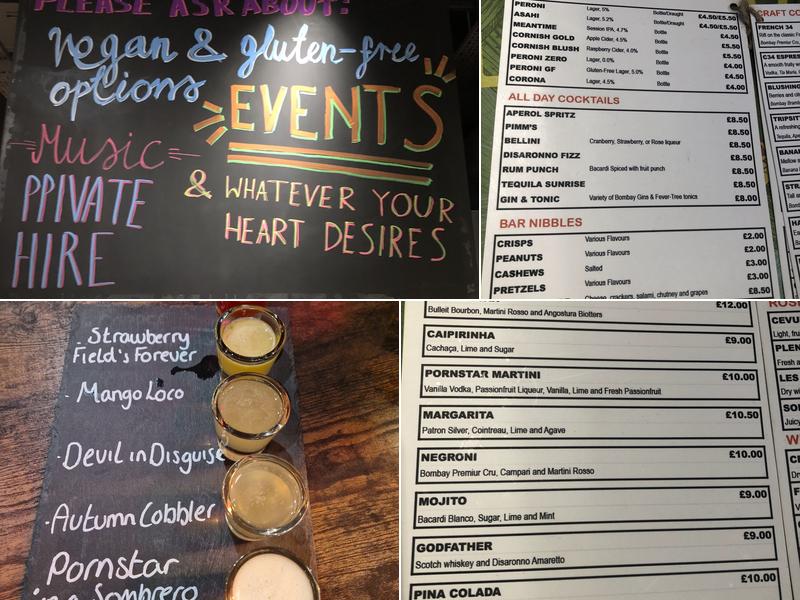 PLEASE ASK ABOUT:
Vegan & gluten-free
options
EVENTS
Music
PPIVATE
HIRE
& WHATEVER YOUR
HEART DESIRES
PERONI Lager, 5% Bottle/Draught £4.50/£5.50
ASAHI Lager, 5.2% Bottle/Draught £4.50/£5.50
MEANTIME Session IPA, 4.7% Bottle £5.50
CORNISH GOLD Apple Cider, 4.5% Bottle
CORNISH BLUSH Raspberry Cider, 4.0% Bottle
PERONI ZERO Lager, 0.0% Bottle £4.00
PERONI GF Gluten-Free Lager, 5.0% Bottle £4.50
CORONA Lager, 4.5% Bottle £4.00
ALL DAY COCKTAILS
APEROL SPRITZ £8.50
PIMM'S £8.50
BELLINI Cranberry, Strawberry, or Rose liqueur £8.50
DISARONNO FIZZ £8.50
RUM PUNCH Bacardi Spiced with fruit punch £8.50
TEQUILA SUNRISE £8.50
GIN & TONIC Variety of Bombay Gins & Fever-Tree tonics £8.00
BAR NIBBLES
CRISPS Various Flavours £2.00
PEANUTS Various Flavours £2.00
CASHEWS Salted £3.00
PRETZELS Various Flavours £3.00
Cheese, crackers, salami, chutney and grapes £8.50
CRAFT CO
FRENCH 34
Bombay Premier
C34 ESPRES
BLUSHING
TRIPSIT
A refreshing
BANAN
Strawberry
Field's Forever
- Mango Loco
· Devil in Disguise
· Autumn Cobbler
Pornstar
in a Sombrero
£12.00
Bulleit Bourbon, Martini Rosso and Angostura Biotters
CAIPIRINHA £9.00
Cachaça, Lime and Sugar
PORNSTAR MARTINI £10.00
Vanilla Vodka, Passionfruit Liqueur, Vanilla, Lime and Fresh Passionfruit
MARGARITA £10.50
Patron Silver, Cointreau, Lime and Agave
NEGRONI £10.00
Bombay Premiur Cru, Campari and Martini Rosso
MOJITO £9.00
Bacardi Blanco, Sugar, Lime and Mint
GODFATHER £9.00
Scotch whiskey and Disaronno Amaretto
PINA COLADA £10.00
CEVU
Light, fru
PLEN
Fresh a
LES
Dry wi
SOL
Juicy
W